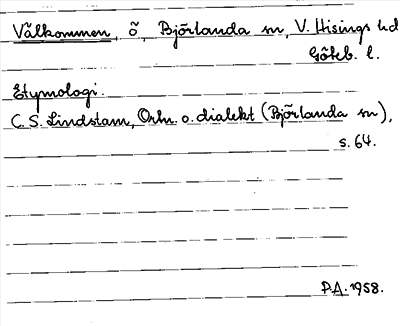 Välkommen, ö, Björlanda sn, V. Hisings hd
Göteb. l.
Etymologi.
C. S. Lindstam, Ortn. o. dialekt (Björlanda sn),
s. 64.
P.A. 1958.